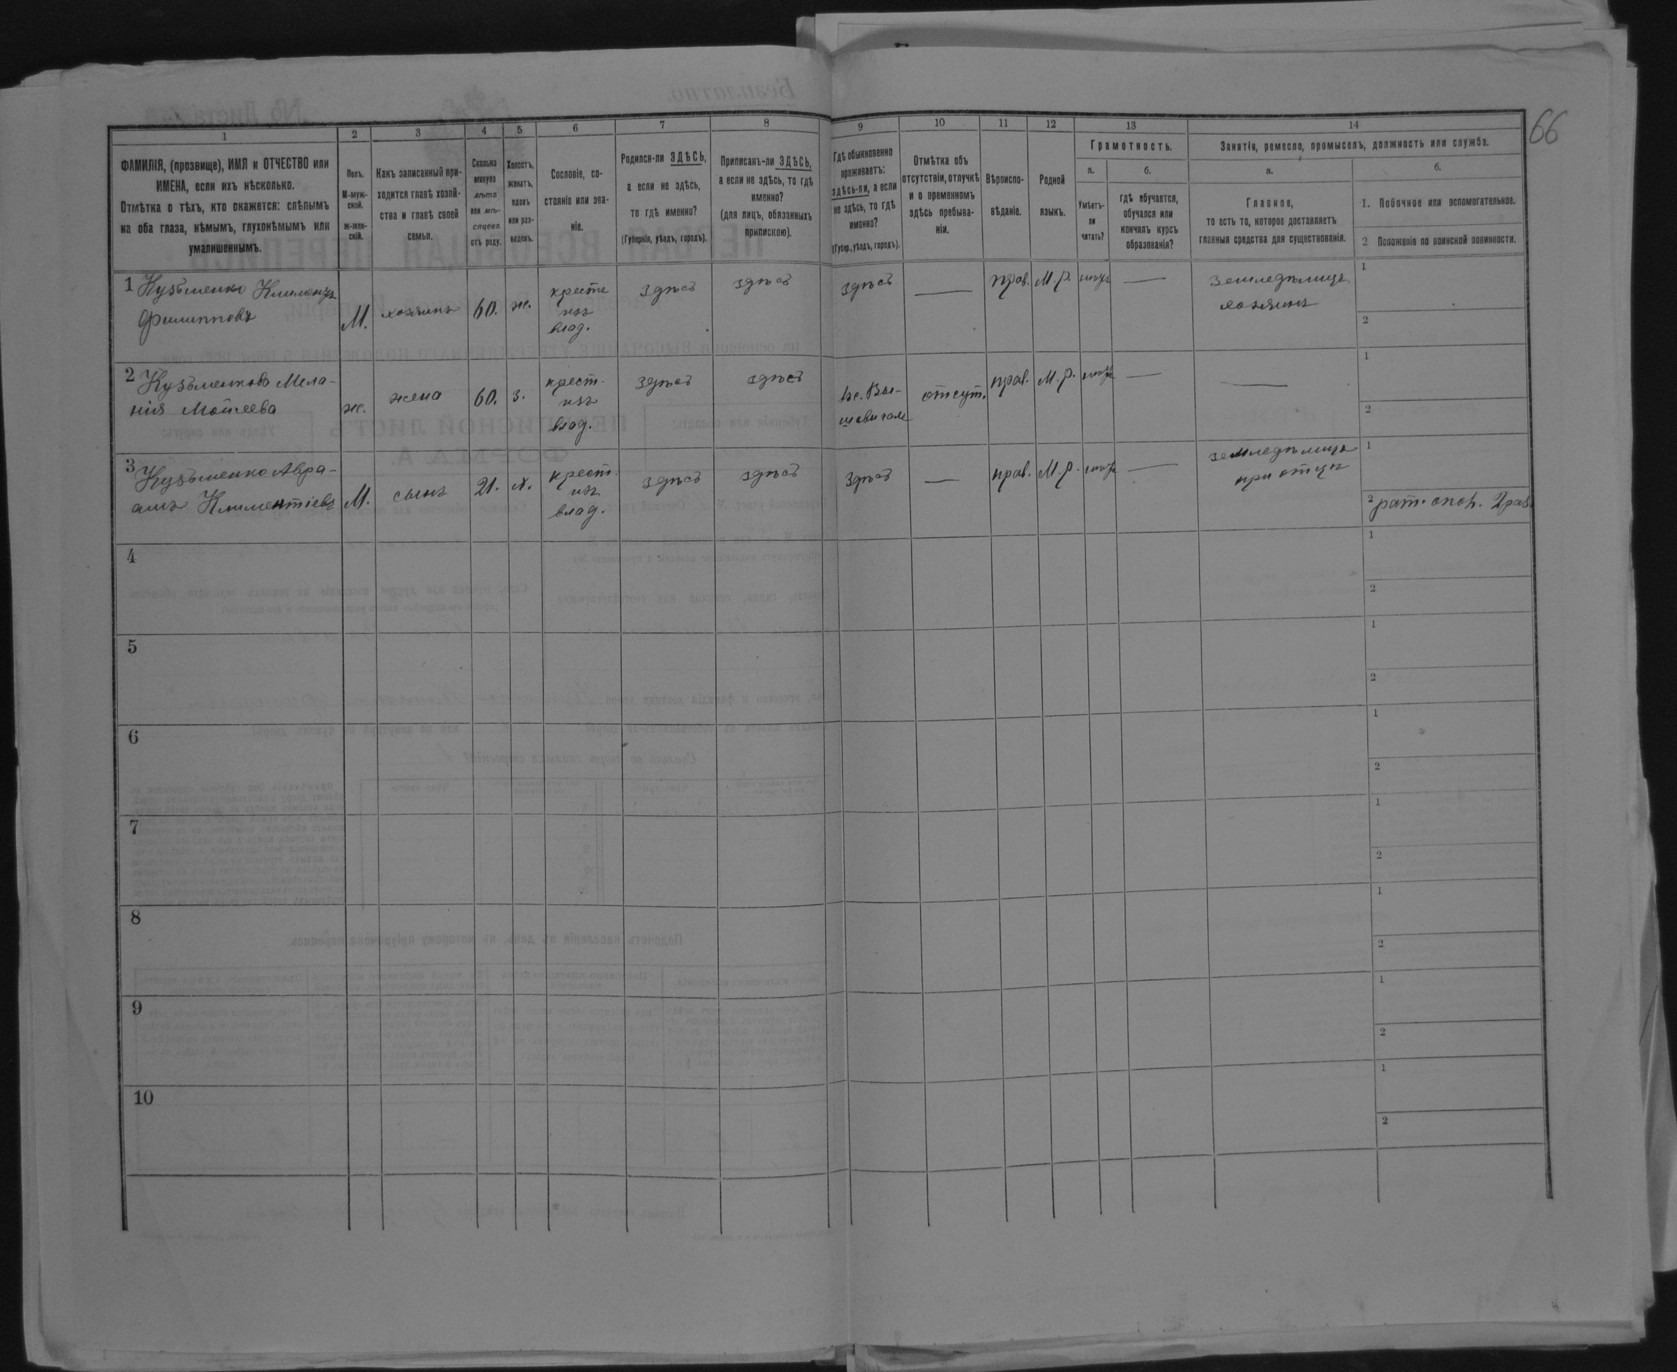 66
1 2 3 4 5 6 7 8 9 10 11 12 13 14
ФАМИЛІЯ, (прозвище), ИМЯ и ОТЧЕСТВО или
ИМЕНА, если ихъ нѣсколько.
Отмѣтка о тѣхъ, кто окажется: слѣпымъ
на оба глаза, нѣмымъ, глухонѣмымъ или
умалишеннымъ.
Полъ.
М-муж-
ской.
ж-жен-
скій.
Какъ записанный при-
ходится главѣ хозяй-
ства и главѣ своей
семьи.
Сколько
минуло
лѣтъ
или мѣ-
сяцевъ
отъ роду.
Холостъ,
женатъ,
вдовъ
или раз-
веденъ.
Сословіе, со-
стояніе или зва-
ніе.
Родился-ли ЗДѢСЬ,
а если не здѣсь,
то гдѣ именно?
(Губернія, уѣздъ, городъ).
Приписанъ-ли ЗДѢСЬ,
а если не здѣсь, то гдѣ
именно?
(для лицъ, обязанныхъ
припискою).
Гдѣ обыкновенно
проживаетъ:
здѣсь-ли, а если
не здѣсь, то гдѣ
именно?
(Губер., уѣздъ, городъ).
Отмѣтка объ
отсутствіи, отлучкѣ
и о временномъ
здѣсь пребыва-
ніи.
Вѣроиспо-
вѣданіе.
Родной
языкъ.
Грамотность.
а.
Умѣетъ-
ли
читать?
б.
Гдѣ обучается,
обучался или
кончилъ курсъ
образованія?
Занятія, ремесло, промыселъ, должность или служба.
а.
Главное,
то есть то, которое доставляетъ
главныя средства для существованія.
б.
1. Побочное или вспомогательное.
2 Положеніе по воинской повинности.
1 Кузьменко
Филипповъ
М. хозяинъ 60. ж.
кресте
изъ
влад.
здѣсь здѣсь здѣсь — прав. М. р. —
земледѣлецъ
хозяинъ
1
2
2 Кузьменкова Мела-
нія Моисеева
ж. жена 60. з.
крест.
изъ
влад.
здѣсь здѣсь
отсут. прав. М. р. — —
1
2
3 Кузьменко Авра-
амъ Климентіевъ
М. сынъ 21. х.
крест.
изъ
влад.
здѣсь здѣсь здѣсь — прав. М. р. —
земледѣлецъ
при отцѣ
1
2 рат. опол. 2 раз.
4
1
2
5
1
2
6
1
2
7
1
2
8
1
2
9
1
2
10
1
2